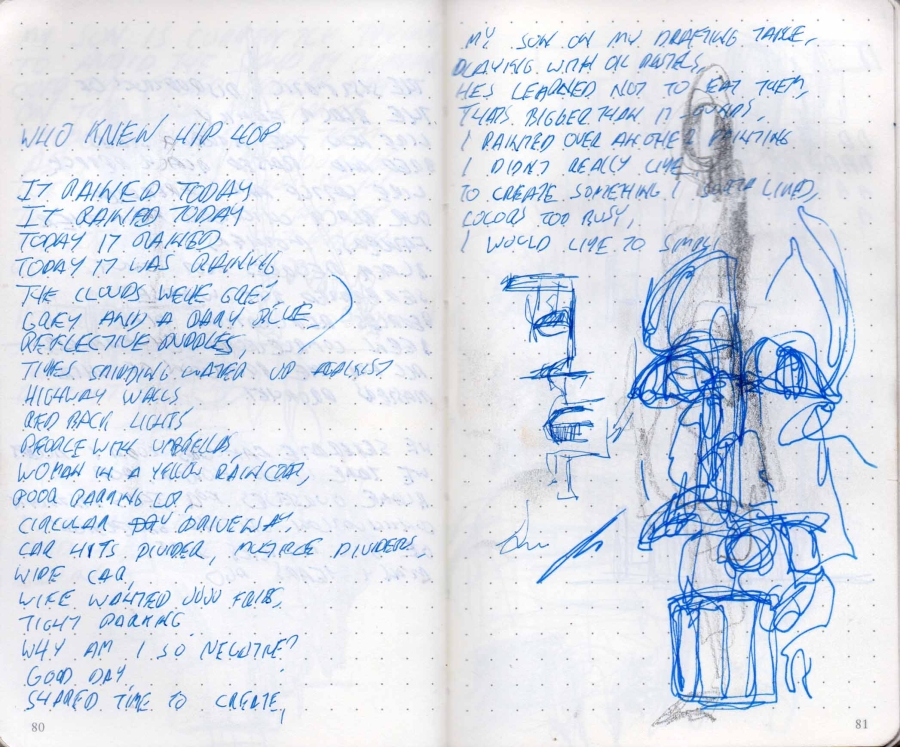 WHO KNEW HIP HOP
IT RAINED TODAY
IT RAINED TODAY
TODAY IT RAINED
TODAY IT WAS RAINING
THE CLOUDS WERE GREY
GREY AND A DARK BLUE,
REFLECTIVE PUDDLES,
TIRES SPINDING WATER UP AGAINST
HIGHWAY WALLS
RED BACK LIGHTS
PEOPLE WITH UMBRELLAS,
WOMAN IN A YELLOW RAIN COAT,
POOR PARKING LOT,
CIRCULAR DRIVEWAY,
CAR HITS DIVIDER, MULTIPLE DIVIDERS,
WIDE CAR,
WIFE WANTED FRIES,
TIGHT PARKING
WHY AM I SO NEGATIVE?
GOOD DAY,
SHARED TIME TO CREATE,
80
MY SON ON MY DRAFTING TABLE,
PLAYING WITH OIL PASTELS,
HES LEARNED NOT TO EAT THEM,
THATS BIGGER THAN IT SOUNDS,
I PAINTED OVER ANOTHER PAINTING
I DIDNT REALLY LIKE
TO CREATE SOMETHING I LIKED,
COLORS TOO BUSY,
I WOULD LIKE TO
81